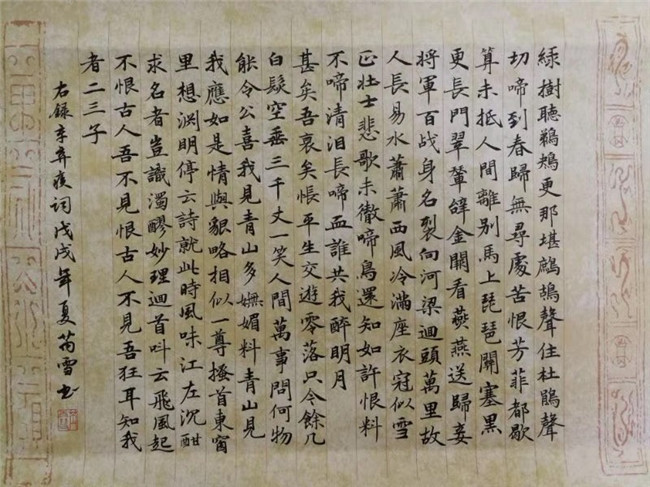 綠樹聽鵜鴂更那堪鷓鴣聲住杜鵑聲
切啼到春歸無尋處苦恨芳菲都歇
算未抵人間離別馬上琵琶關塞黑
更長門翠輦辭金闕看燕燕送歸妾
將軍百战身名裂向河梁迴頭萬里故
人長易水蕭蕭西風冷滿座衣冠似雪
正壯士悲歌未徹啼鳥還知如許恨料
不啼清泪長啼血誰共我醉明月
甚矣吾衰矣悵平生交遊零落只今餘几
白髮空垂三千丈一笑人間萬事問何物
能令公喜我見青山多嫵媚料青山見
我應如是情與貌略相似一尊搔首東窗
里想渊明停云詩就此時風味江左沉酣
求名者豈識濁醪妙理迴首叫云飛風起
不恨古人吾不見恨古人不見吾狂耳知我
者二三子
右錄辛弃疾词戊戌年夏芮雪书